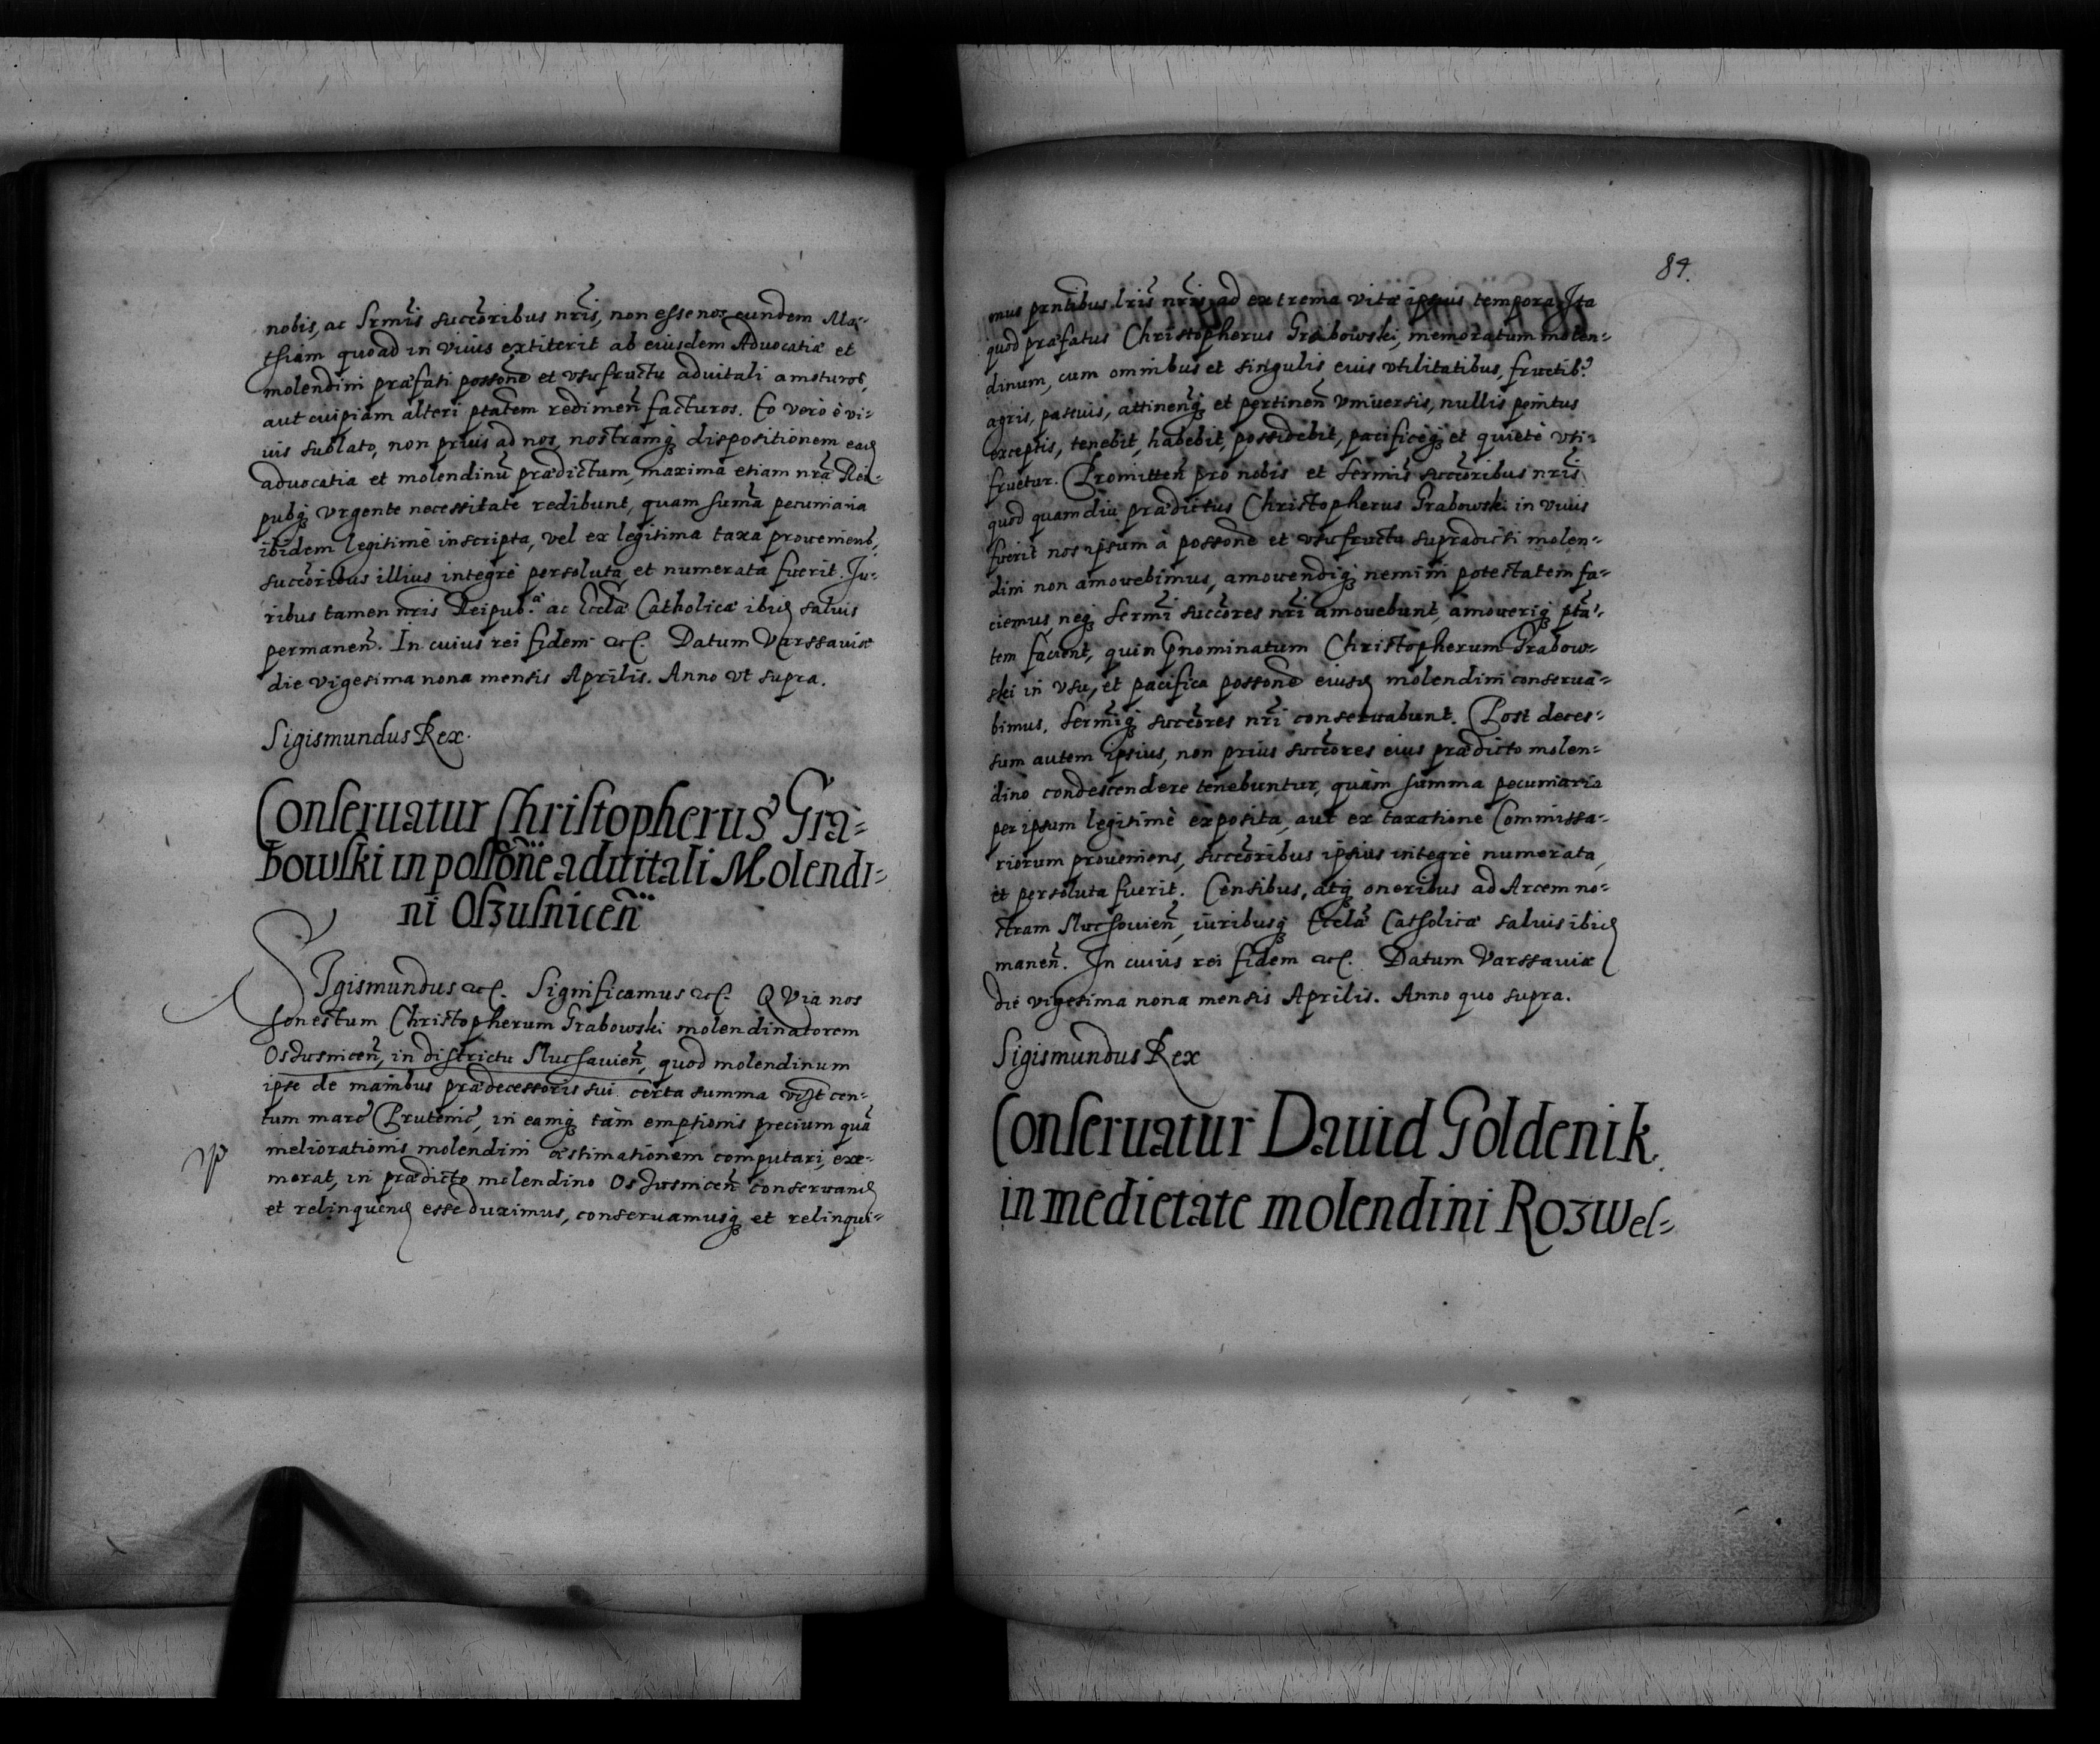 nobis, ac Srm̃is succõribus nr̃is, non esse nos eundem Ma-
thiam quoad in viuis extiterit ab eiusdem Aduocatiæ et
molendini præfati possoñe et vsufructu aduitali amoturos,
aut cuipiam alteri ptatem redimeñ facturos. Eo verò è vi-
uis sublato, non prius ad nos, nostramq dispositionem ead
aduocatia et molendinũ prædictum, maxima etiam nr̃a Rei-
pubq vrgente necessitate redibunt, quam sum̃a pecuniaria
ibidem legitimè inscripta, vel ex legitima taxa proueniens,
succõribus illius integrè persoluta et numerata fuerit. Iu-
ribus tamen nr̃is Reipub.ᵃᵉ ac Eccl̃æ Catholicæ ibid saluis
permaneñ. In cuius rei fidem etc. Datum Varssauiæ
die vigesima nona mensis Aprilis. Anno vt supra.
Sigismundus Rex.
Conseruatur Christopherus Gra-
bowski in possoñe aduitali Molendi-
ni Oszusniceñ
SIgismundus etc. Significamus etc. QVia nos
honestum Christopherum Grabowski molendinatorem
Oszusniceñ, in districtu Sluchauieñ, quod molendinum
ipse de manibus prædecessoris sui certa summa vist cen-
tum marc Prutenic, in eamq tàm emptionis precium quã
meliorationis molendini æstimationem computari, exe-
merat, in prædicto molendino Oszusniceñ conseruand
et relinquend esse duximus, conseruamusq et relinqui-
84.
mus prñtibus lr̃is nr̃is, ad extrema vitæ ipsius tempora. Ita
quod præfatus Christopherus Grabowski, memoratum molen-
dinum, cum omnibus et singulis eius vtilitatibus, fructib9
agris, pascuis, attinenq et pertineñ vniuersis, nullis penitus
exceptis, tenebit, habebit, possidebit, pacificèq et quietè vti-
fruetur. Promitteñ pro nobis et serm̃is succõribus nr̃is
quod quamdiu prædictus Christopherus Grabowski in viuis
fuerit nos ipsum à possoñe et vsufructu supradicti molen-
dini non amouebimus, amouendiq nemini potestatem fa-
ciemus, neq serm̃i succõres nr̃i amouebunt, amouerĩq ptã-
tem facient, quin pnominatum Christopherum Grabow-
ski in vsu, et pacifica possoñe eiusd molendini conserua-
bimus, serm̃iq succõres nr̃i conseruabunt. Post deces-
sum autem ipsius, non prius succõres eius prædicto molen-
dino condescendere tenebuntur, quàm summa pecuniaria
per ipsum legitimè exposita, aut ex taxatione Commissa-
riorum proueniens, succõribus ipsius integrè numerata,
et persoluta fuerit. Censibus, atq oneribus ad Arcem no-
stram Sluchouieñ, iuribusq Eccl̃æ Catholicæ saluis ibid
maneñ. In cuius rei fidem etc. Datum Varssauiæ
die vigesima nona mensis Aprilis. Anno quo supra.
Sigismundus Rex
Conseruatur Dauid Goldenik
in medietate molendini Rozwel-